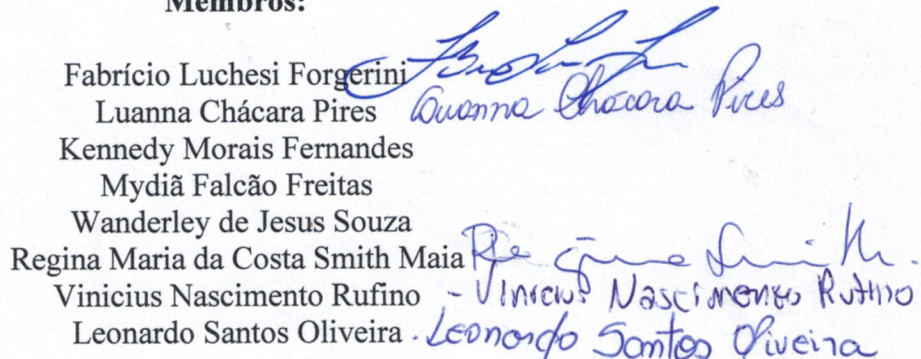 Membros:
Fabrício Luchesi Forgerini
Luanna Chácara Pires Luanna Chácara Pires
Kennedy Morais Fernandes
Mydiã Falcão Freitas
Wanderley de Jesus Souza
Regina Maria da Costa Smith Maia
Vinicius Nascimento Rufino - Vinicius Nascimento Rufino
Leonardo Santos Oliveira . Leonardo Santos Oliveira